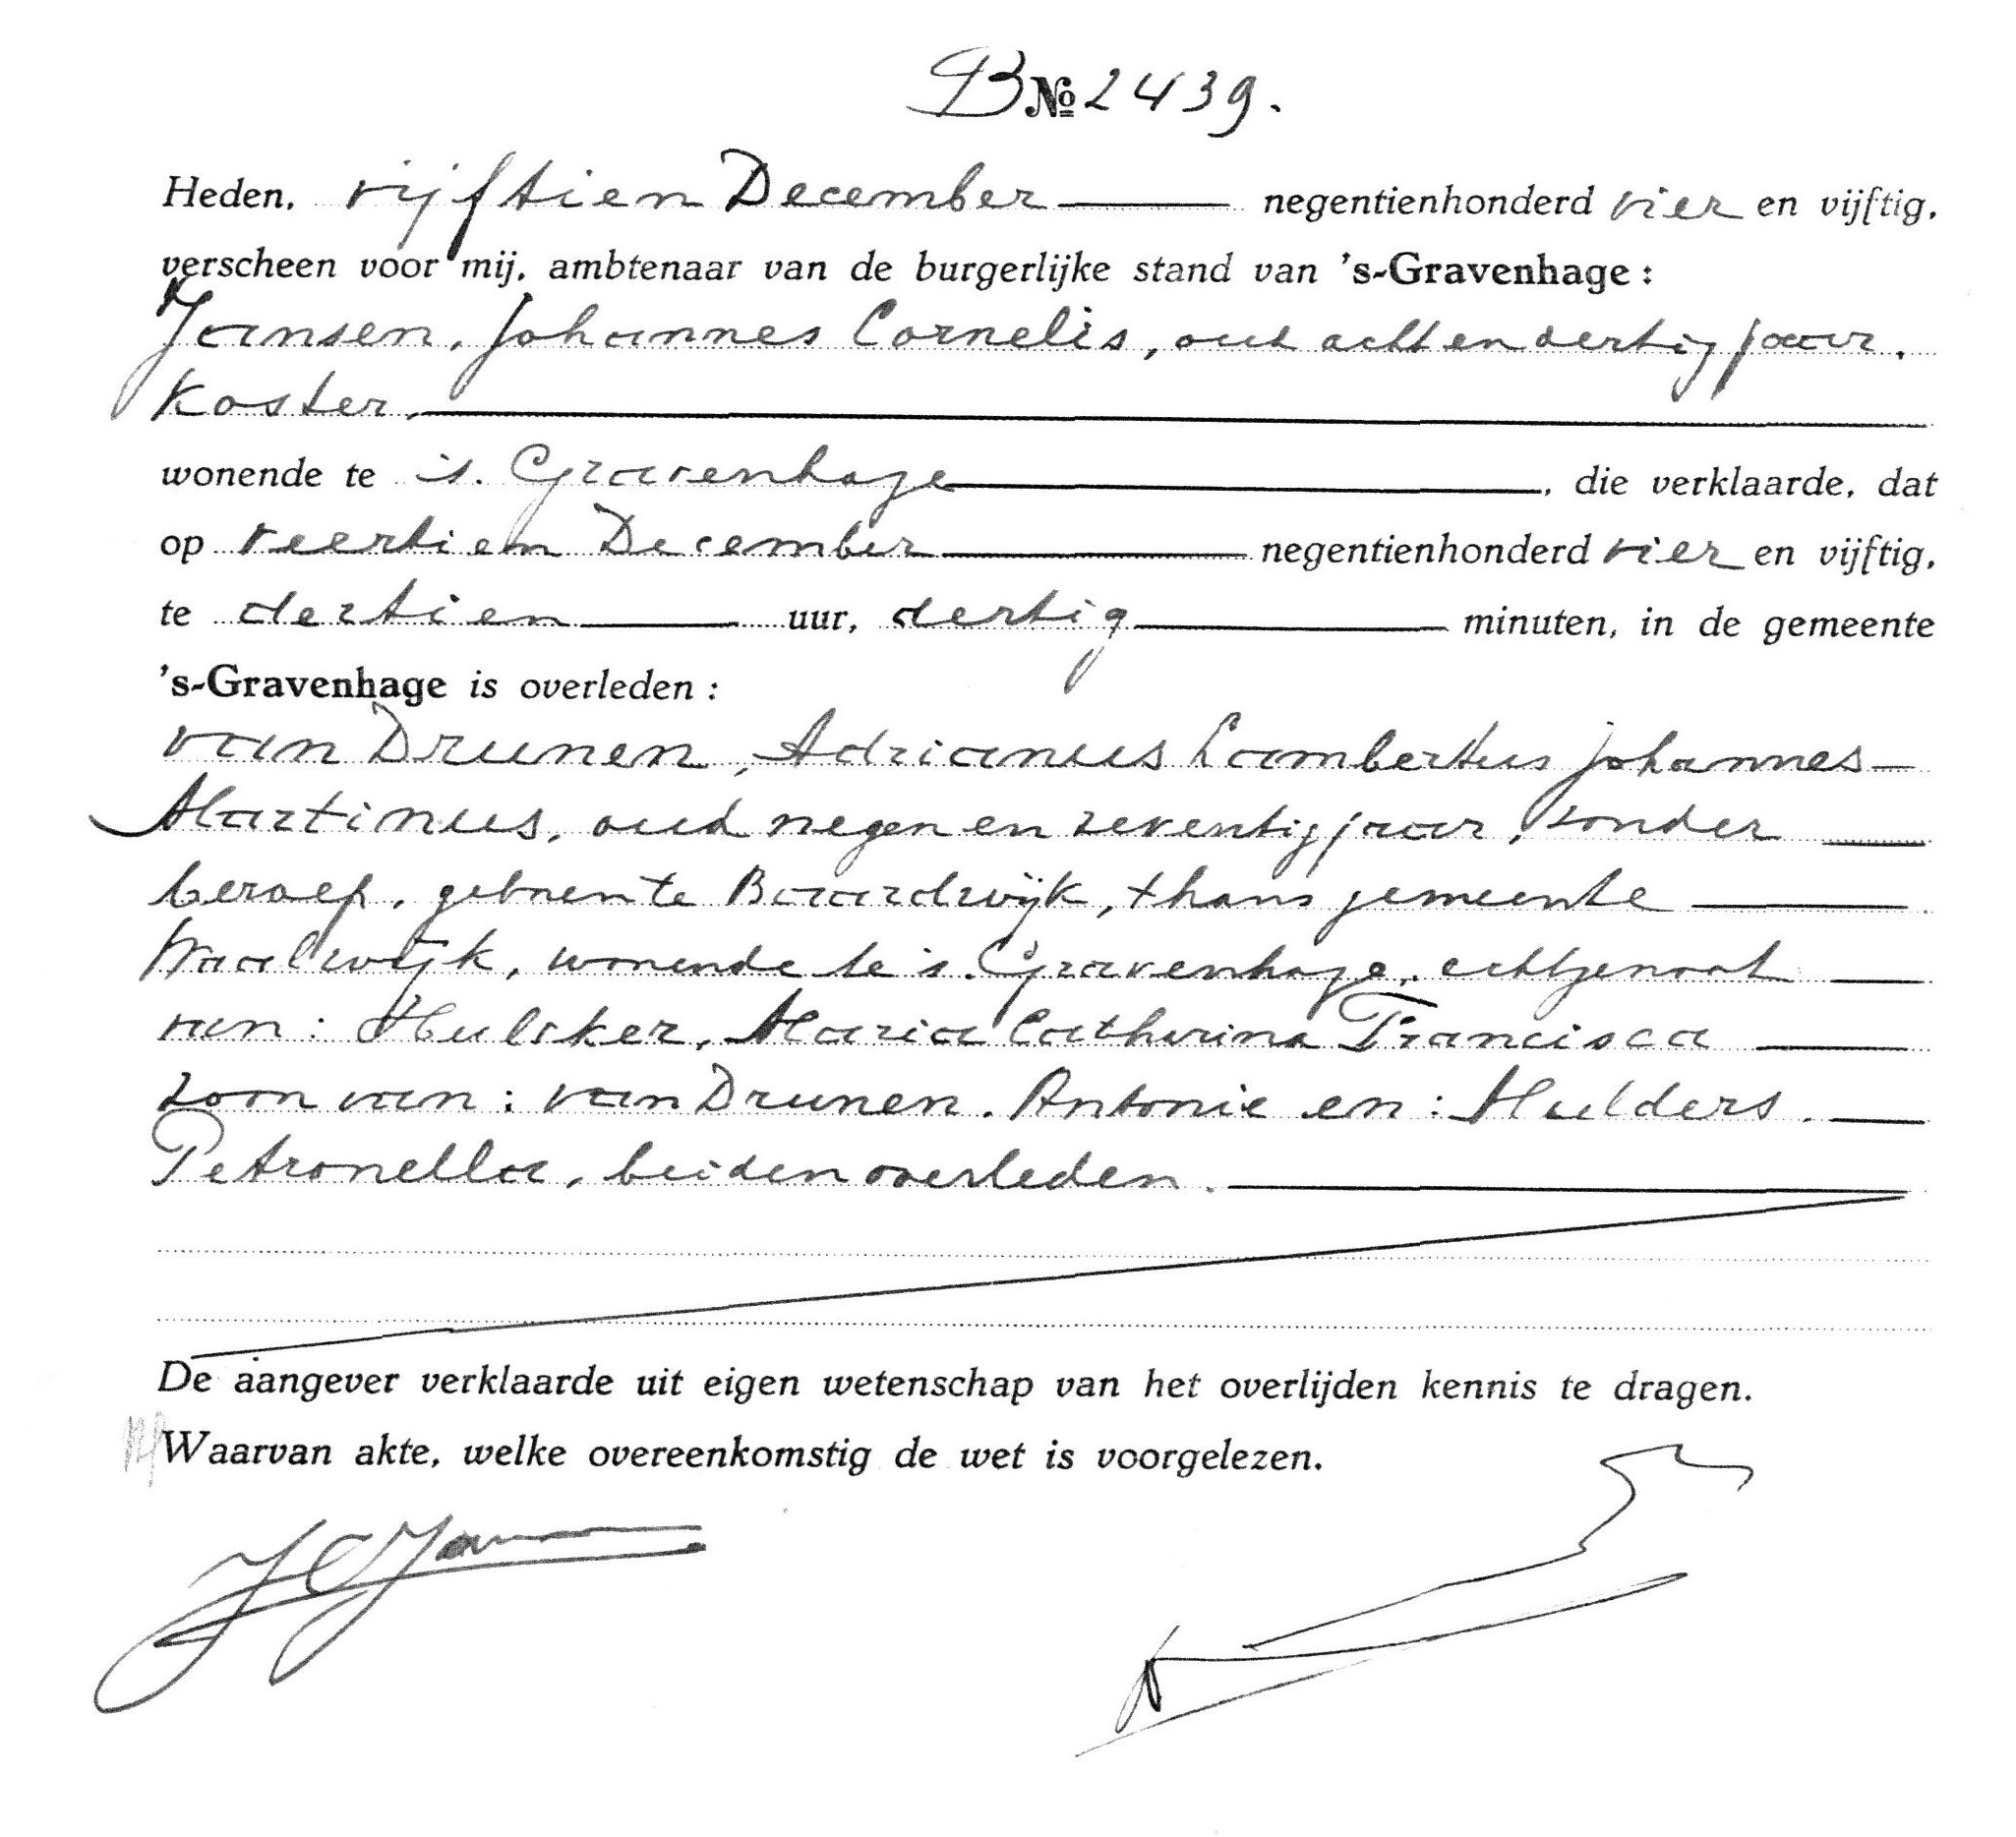 B No 2439.
Heden, vijftien December negentienhonderd vier en vijftig,
verscheen voor mij, ambtenaar van de burgerlijke stand van 's-Gravenhage:
Jansen, Johannes Cornelis, oud acht en dertig jaar,
koster,
wonende te 's. Gravenhage, die verklaarde, dat
op veertien December negentienhonderd vier en vijftig,
te dertien uur, dertig minuten, in de gemeente
's-Gravenhage is overleden:
van Drunen, Adrianus Lambertus Johannes
Martinus, oud negen en zeventig jaar, zonder
beroep, geboren te Baardwijk, thans gemeente
Waalwijk, wonende te 's. Gravenhage, echtgenoot
van: Hulsker, Maria Catharina Francisca
zoon van: van Drunen, Antonie en: Mulders,
Petronella, beiden overleden.
De aangever verklaarde uit eigen wetenschap van het overlijden kennis te dragen.
Waarvan akte, welke overeenkomstig de wet is voorgelezen.
J C Jansen